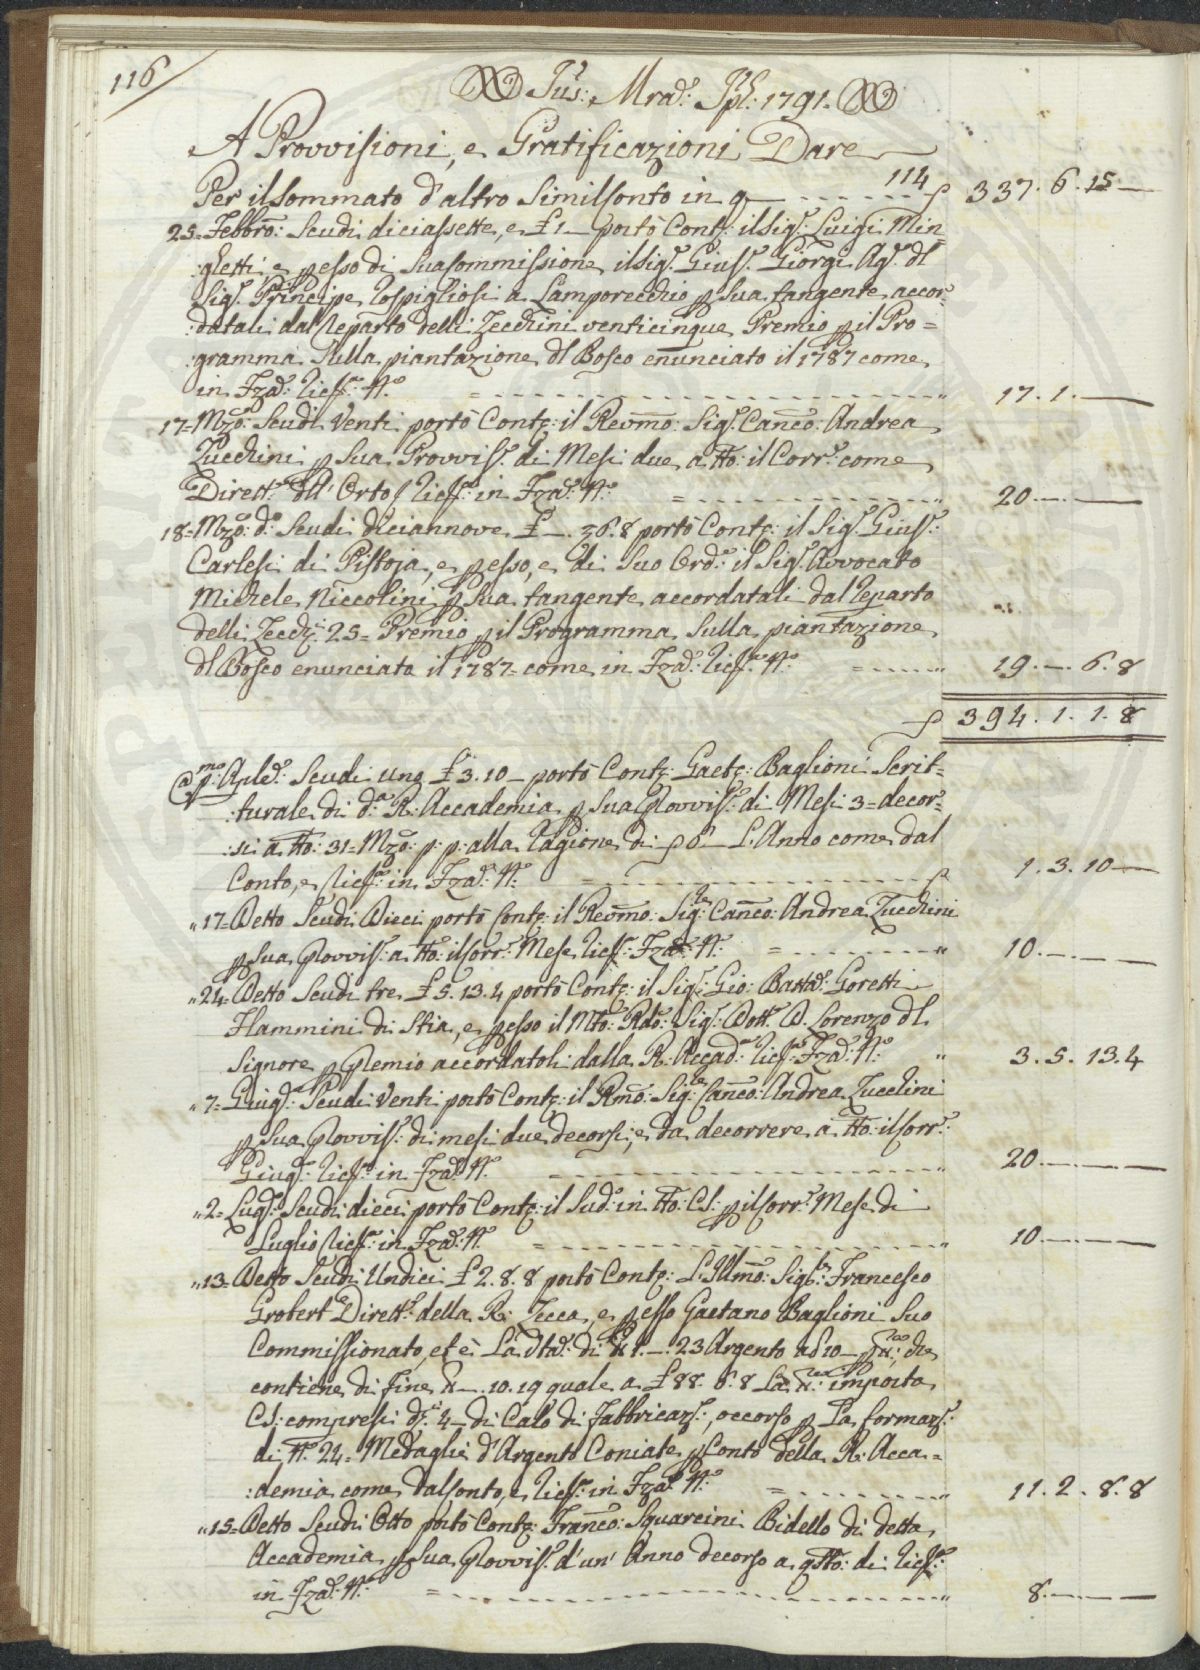 116
Jus: Mrad: Jpl: 1791.
A Provvisioni, e Gratificazioni Dare
Per il Sommato d'altro Simil Conto in q 114 ƒ 337. 6. 15 —
25= Febbro: Scudi diciassette, e £ 1 — portò Cont: il Sig: Luigi Min=
:ghetti e p esso di Sua Commissione il Sig: Gius: Giorgi Ag: dl
Sig: Principe Rospigliosi a Lamporecchio p Sua tangente accor=
:datali dal Reparto delli Zecchini venticinque Premio p il Pro=
:gramma Sulla piantazione dl Bosco enunciato il 1787 come
in Fza: Ricev: N.° = " 17. 1. —
17= Mzo: Scudi Venti portò Cont: il Revmo: Sig: Canco: Andrea
Zucchini p Sua Provvis: di Mesi due a tto: il Corr: come
Dirett: dll' Orto / Ricev: in Fza: N.° = " 20. — . —
18= Mzo: do: Scudi diciannove £ —. 36. 8 portò Cont: il Sig: Gius:
Carlesi di Pistoja, e p esso, e di Suo Ord: il Sig: Avvocato
Michele Niccolini p Sua tangente accordatali dal Reparto
delli Zecch: 25= Premio p il Programma Sulla piantazione
dl Bosco enunciata il 1787= come in Fza: Ricev: N.° = " 19. —. 6. 8
ƒ 394. 1. 1. 8
@ pmo: Aple: Scudi uno £ 3. 10 — portò Cont: Gaet: Baglioni Scrit=
:turale di da: R: Accademia p Sua Provvis: di Mesi 3= decor=
:si a tto: 31= Mzo: p: p: alla Ragione di ƒ 6 — L'Anno come dal
Conto, e Ricev: in Fza: N.° = ƒ 1. 3. 10 —
" 17= Detto Scudi Dieci portò Cont: il Revmo: Sig: Canco: Andrea Zucchini
p Sua Provvis: a tto: il Corr: Mese Ricev: Fza: N.° = " 10. — . —
" 24= Detto Scudi tre £ 5. 13. 4 portò Cont: il Sig: Gio: Batta: Goretti
Flammini di Stia, e p esso il Mto: Rdo: Sig: Dott: D. Lorenzo dl
Signore p Premio accordatoli dalla R: Accad: Ricev: Fza: N.° " 3. 5. 13. 4
" 7= Giug: Scudi Venti portò Cont: il Rmo: Sig: Canco: Andrea Zucchini
p Sua Provvis: di mesi due decorsi; e da decorrere a tto: il Corr:
Giug: Ricev: in Fza: N.° = " 20. — . —
" 2= Lug: Scudi dieci portò Cont: il Sud: in tto: CS: p il Corr: Mese di
Luglio Ricev: in Fza: N.° = " 10. — . —
" 13= Detto Scudi Undici £ 2. 8. 8 portò Cont: L'Illmo: Sig: Francesco
Grobert Dirett: della R: Zecca, e p esso Gaetano Baglioni Suo
Commissionato, et è La Vta: di 1. —. 23 Argento ad 10 — che
contiene di Fine —. 10. 19 quale a £ 88. 6. 8 La importa
CS: compresi 4 — di Calo di Fabbricaz:, occorso p La formaz:
di N.° 24= Medaglie d'Argento Coniate p Conto della R: Acca=
:demia come dal Conto, e Ricev: in Fza: N.° = " 11. 2. 8. 8
" 15= Detto Scudi Otto portò Cont: Franco: Squarcini Bidello di detta
Accademia p Sua Provvis: d'un' Anno decorso a qto: dì Ricev:
in Fza: N.° = " 8. — . —